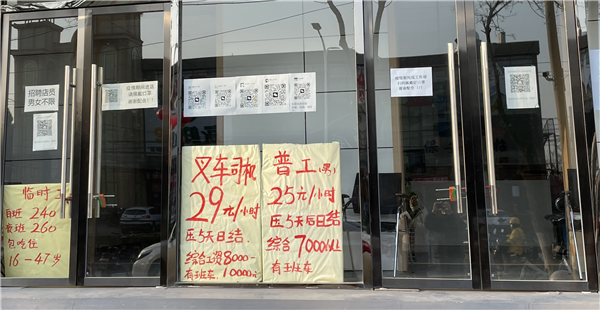 招聘店员
男女不限
疫情期间进店
请佩戴口罩
谢谢配合!!
临时工
白班 240
夜班 260
包吃住
16-47岁
叉车司机
29元/小时
压5天日结
综合工资8000-
有班车 10000元
普工(男)
25元/小时
压5天后日结
综合7000以上
有班车